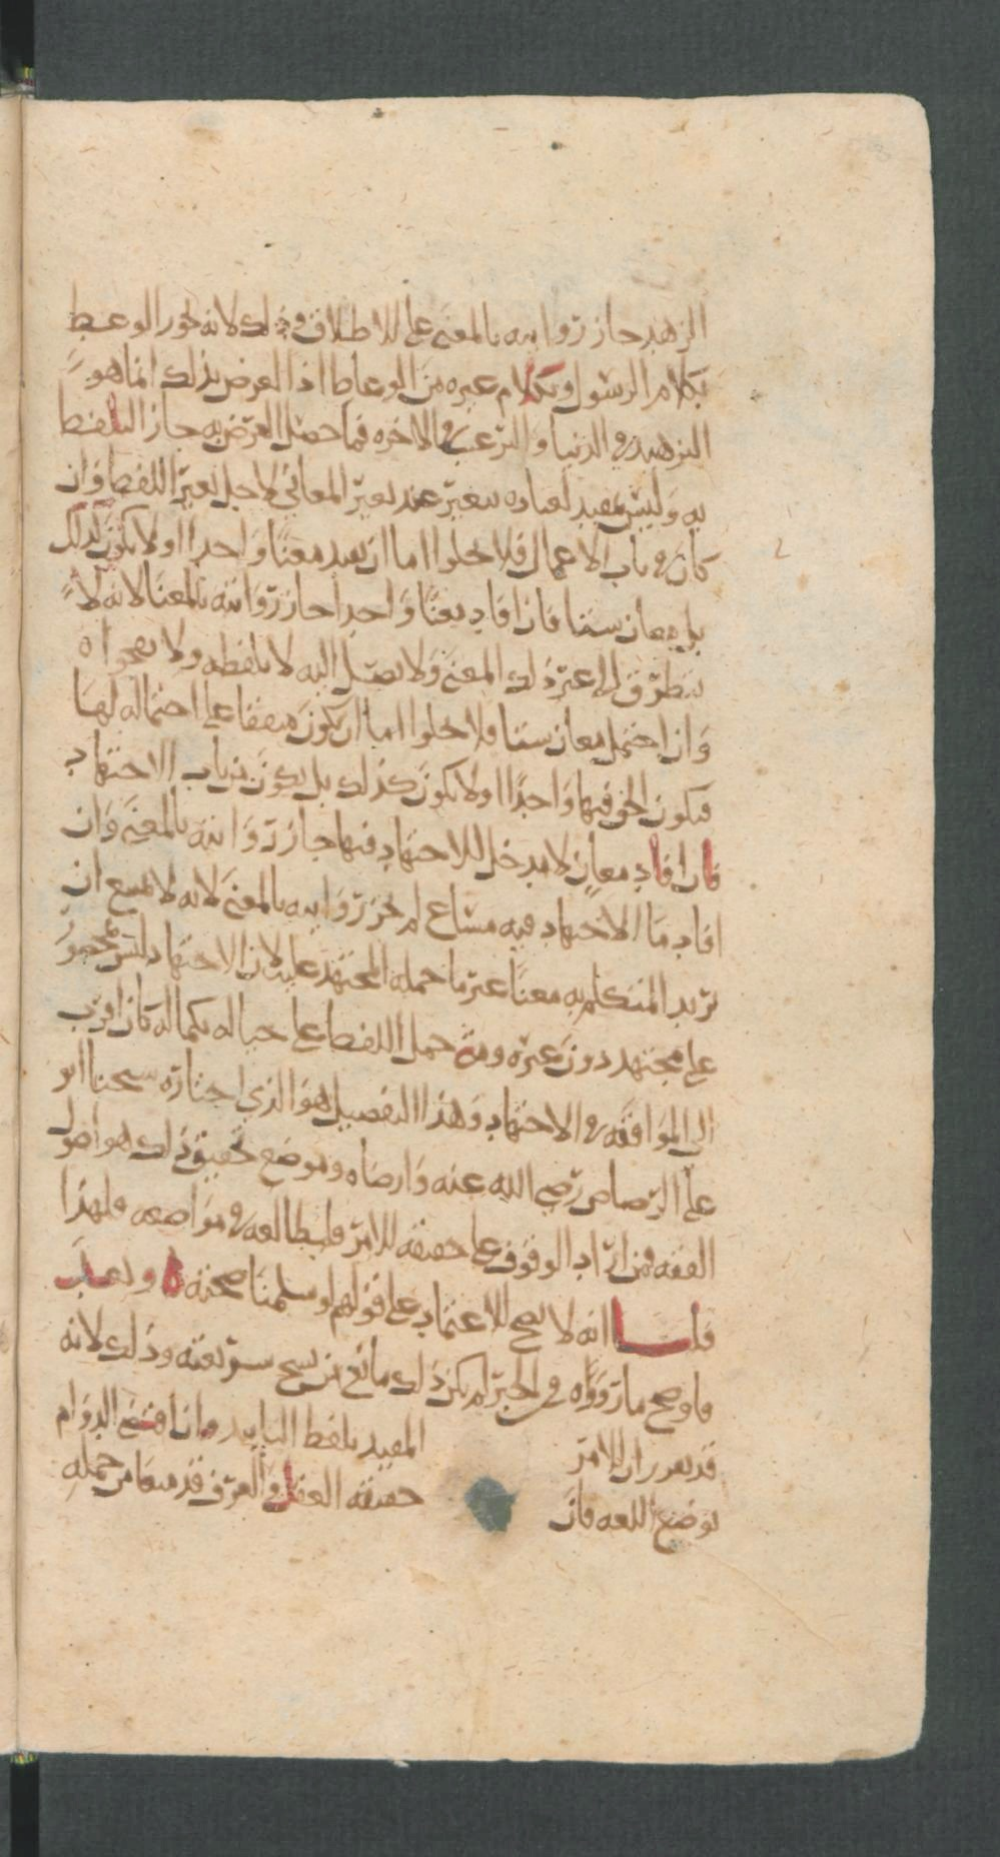 الزهد جاز روايته بالمعنى على الاطلاق وذلك لانه يجوز الوعظ
بكلام الرسول وبكلام غيره من الوعاظ اذ الغرض بذلك انما هو
التزهيد في الدنيا والترغيب في الاخره فما حصل الغرض به جاز التلفظ
به وليس بمفيد لعباده تتغير عند تغير المعاني لاجل تغير اللفظ وان
كان في باب الاعمال فلا يخلوا اما ان يفيد معنا واحدا او لا يكون كذلك
بل معان ستا فان افاد معنا واحدا جاز روايته بالمعنا لانه لا
يتطرق الى غير ذلك المعنى ولا يصل اليه لا بلفظه ولا بفحواه
وان احتمل معان ستا فلا يخلوا اما ان يكون متفقا على احتماله لها
فيكون الحق فيها واحدا او لا يكون كذلك بل يكون من باب الاجتهاد
فان افاد معان لا مدخل للاجتهاد فيها جاز روايته بالمعنى وان
افاد ما الاجتهاد فيه مساغ لم يجز روايته بالمعنى لانه لا يمتنع ان
يريد المتكلم به معنا غير ما حمله المجتهد عليه لان الاجتهاد ليس بمحصور
على مجتهد دون غيره ومتى حمل اللفظ على حياله بكماله كان اقرب
الى الموافقه في الاجتهاد وهذا التفصيل هو الذي اختاره شيخنا ابو
علي الرصاص رضي الله عنه وارضاه وموضع تحقيق ذلك هو اصول
الفقه فمن اراد الوقوف على حقيقه الامر فليطالعه في مواضعه فلهذا
قلنا انه لا يصح الاعتماد على قولهم لو سلمنا صحته ه وبعد
فلو صح ما رووه في الخبر لم يكن ذلك مانع من نسخ شريعته وذلك لانه
قد تقرر ان الامر المقيد بلفظ التابيد وان اقتضى الدوام
بوضع اللغه فان حقيقه العقل والعرف قد منعا من حمله